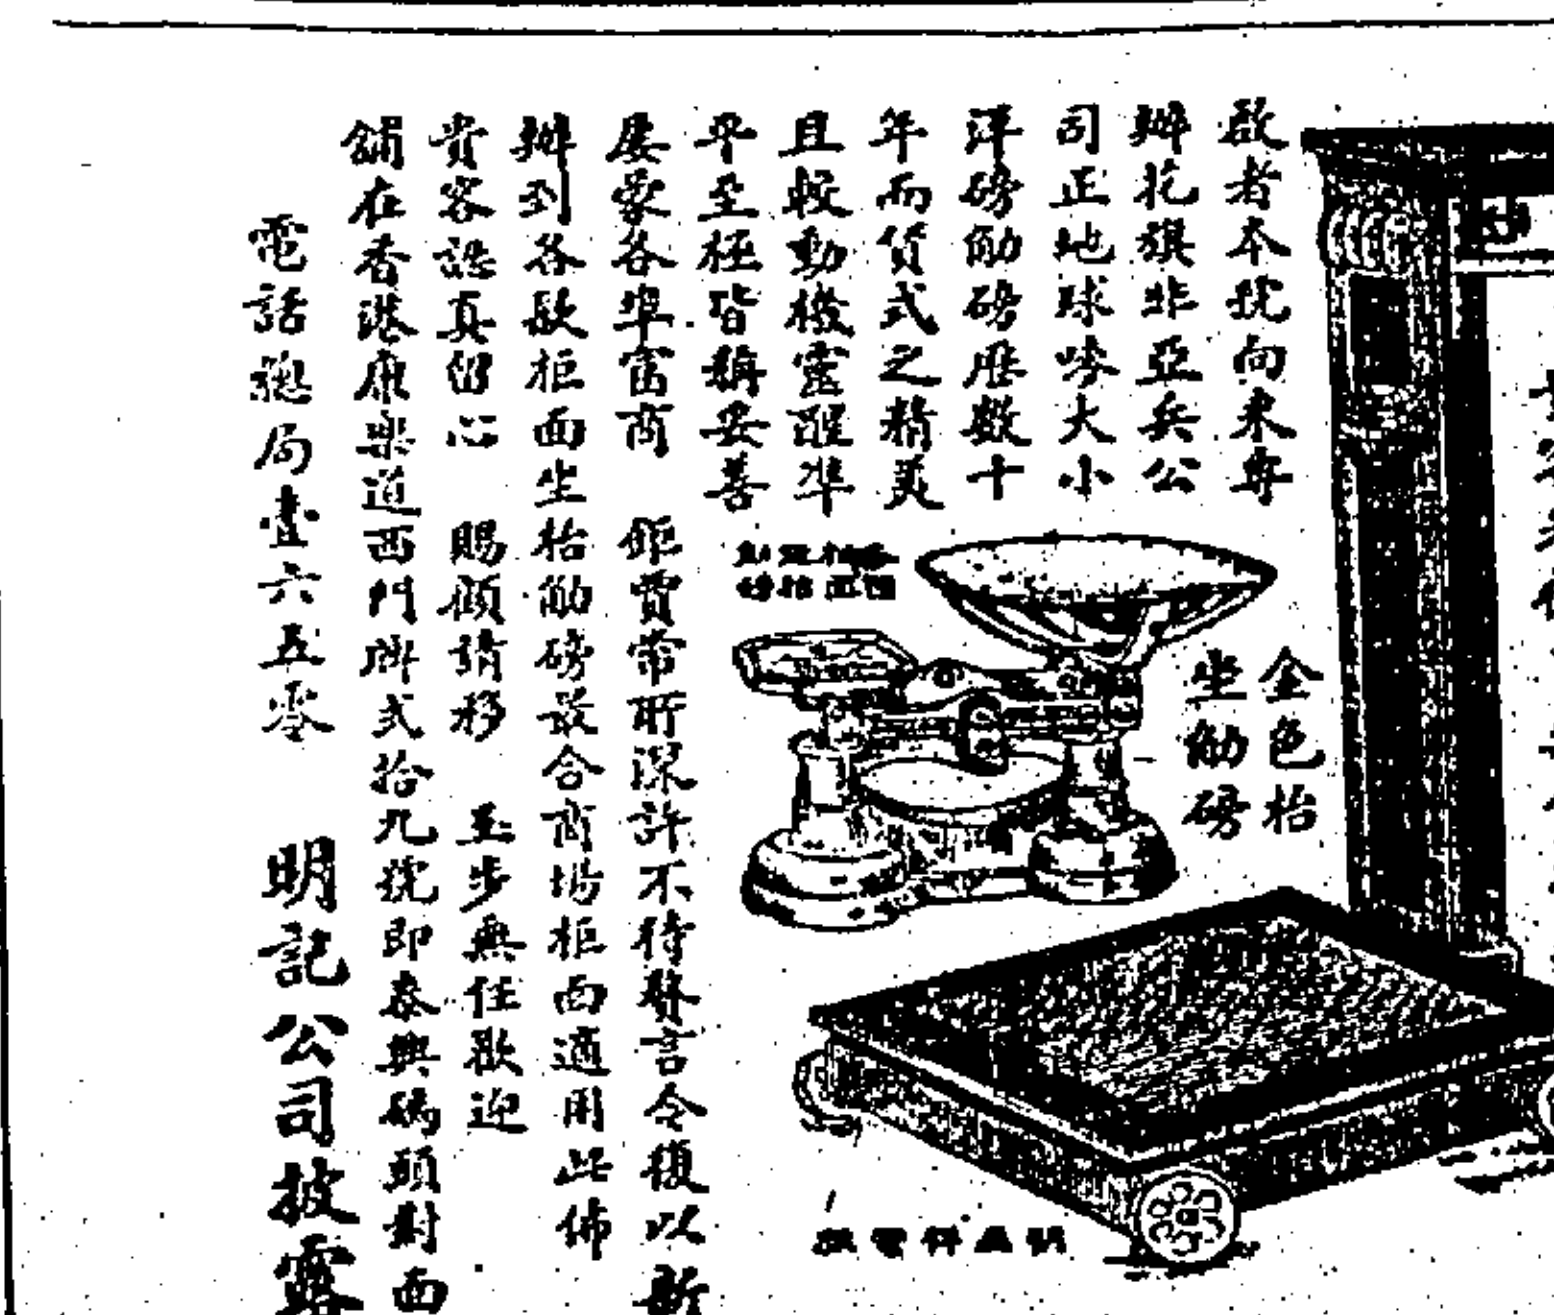 啟者本號向來專
辦花旗非亞兵公
司正地球嘜大小
洋磅觔磅歷數十
年而貨式之精美
且較動機靈醒準
平至極皆稱妥善
屡蒙各埠富商 鉅賈常所深許不待贅言今復以新
辦到各款柜面坐枱觔磅最合商場柜面適用此佈
貴客認真留心 賜顧請移 玉步無任歡迎
舖在香港康樂道西門牌弍拾九號即泰興碼頭對面
電話總局壹六五零 明記公司披露
金色枱
坐觔磅